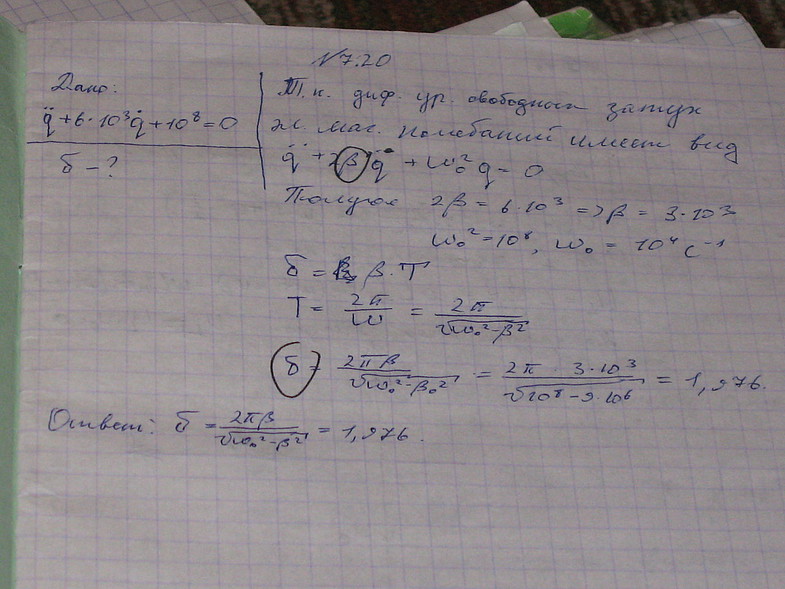 N 7.20
Дано:
q̈ + 6·10³q̇ + 10⁸ = 0
δ - ?
Т.к. диф. ур. свободных затух
эл. маг. колебаний имеет вид
q̈ + 2β q̇ + ω₀² q = 0
Получаем 2β = 6·10³ => β = 3·10³
ω₀² = 10⁸, ω₀ = 10⁴ с⁻¹
δ = β·T
T = 2π/ω = 2π/√(ω₀²-β²)
δ = 2πβ/√(ω₀²-β₀²) = 2π · 3·10³/√(10⁸-9·10⁶) = 1,976.
Ответ: δ = 2πβ/√(ω₀²-β²) = 1,976.